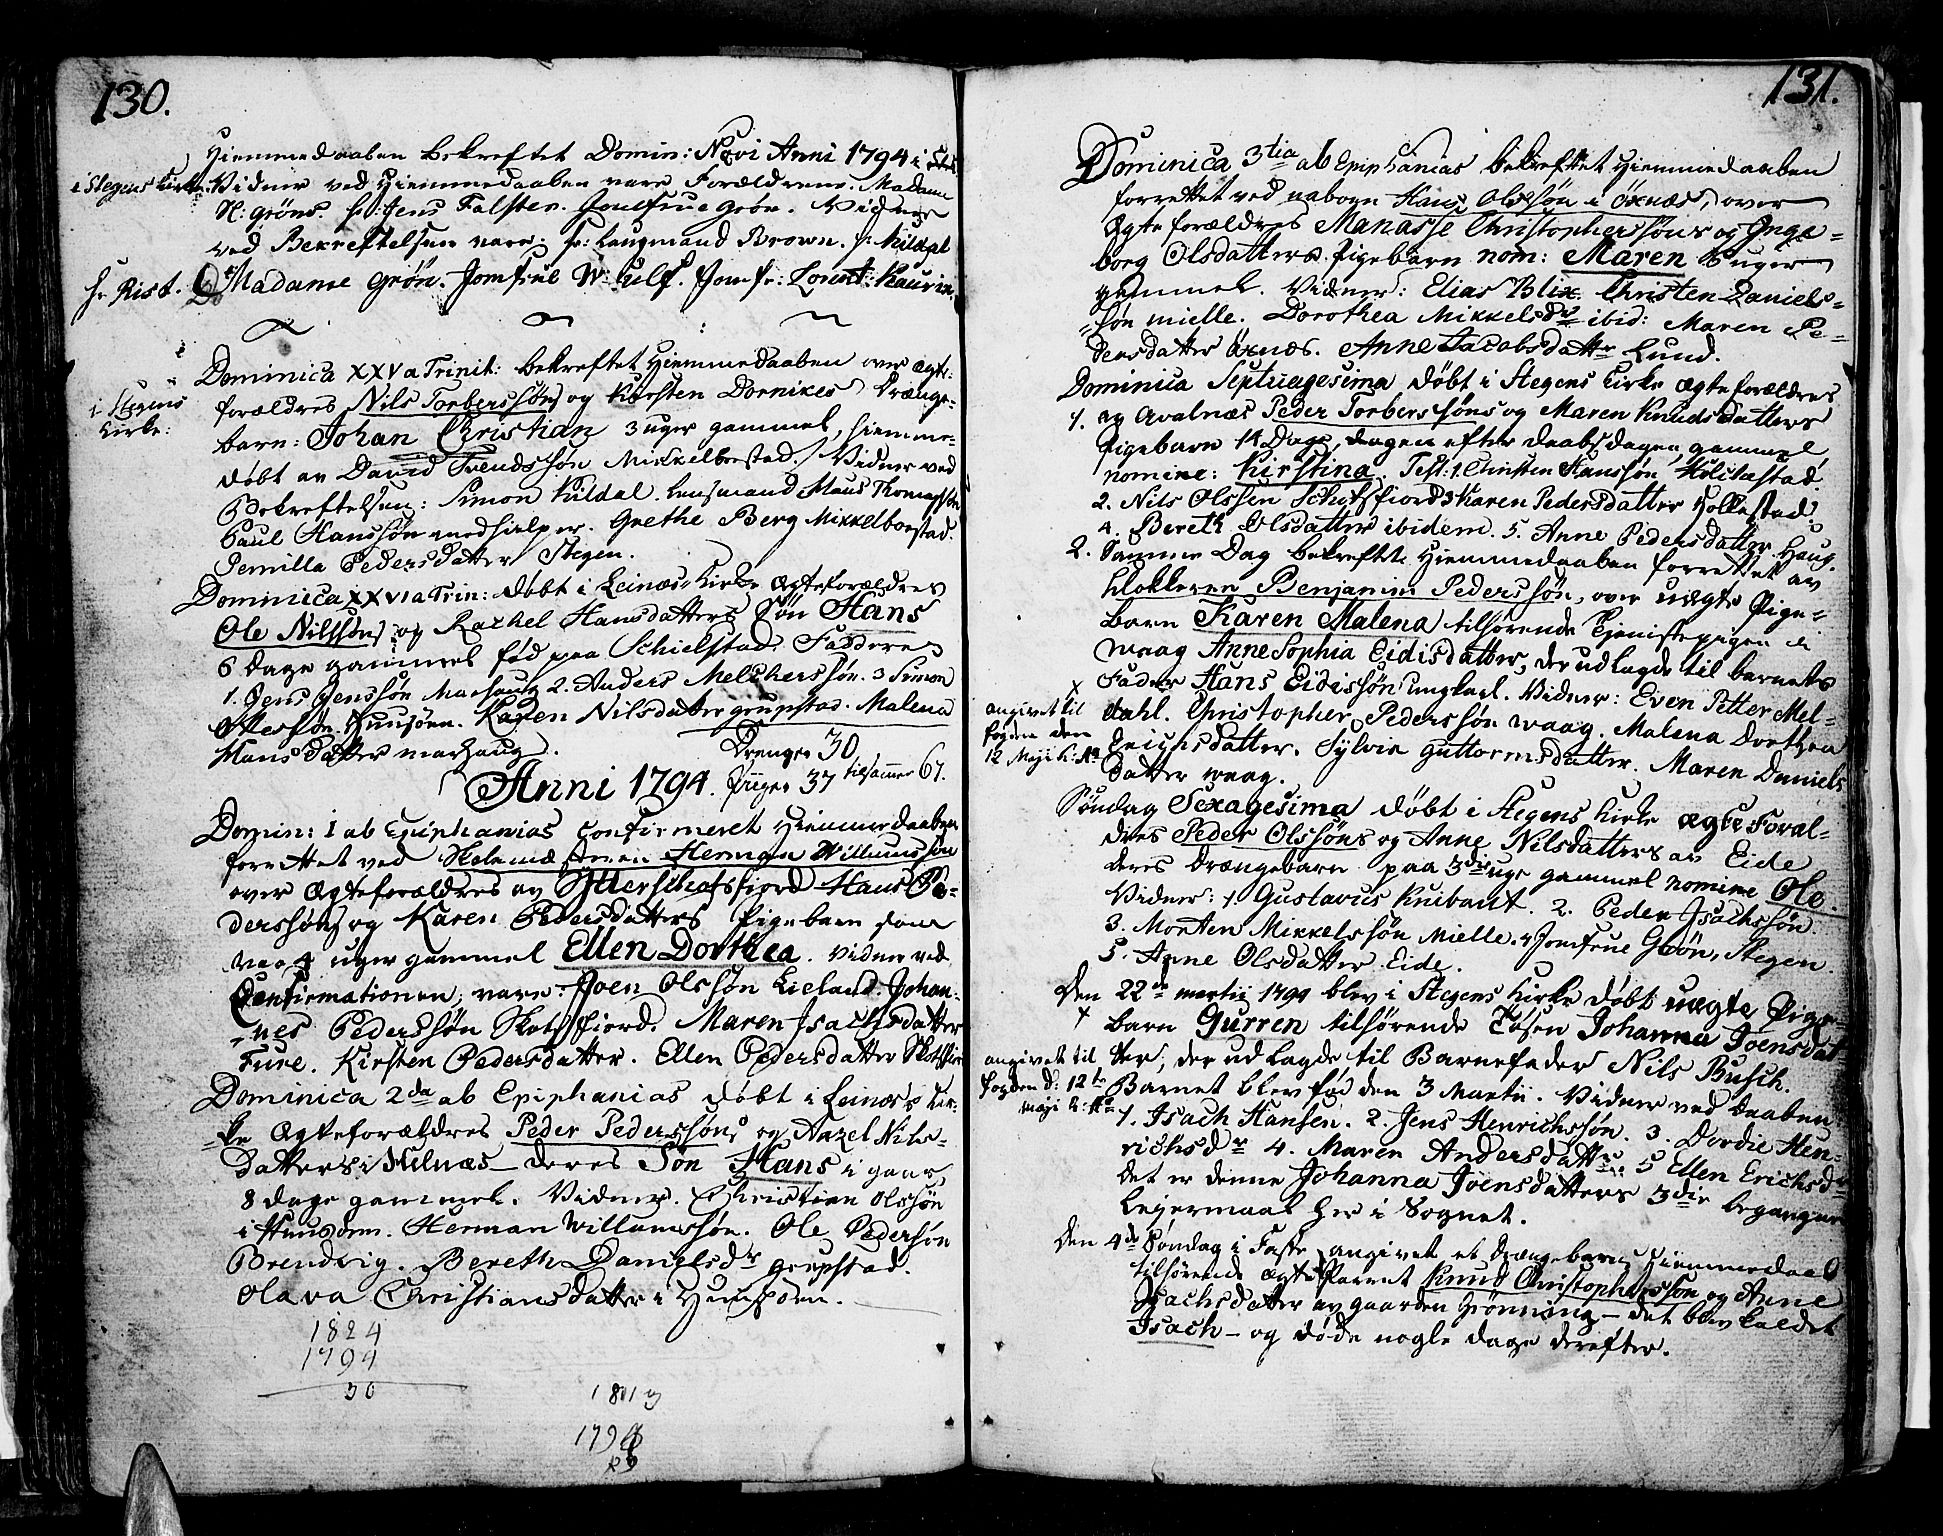 130.
Hiemmedaaben bekreftet Domin: Novi Anni 1794 i
i Stegens Kirke: Vidner ved Hiemmedaaben vare Forældrene. Madame
H: Grøns. hr: Jens Falster. Jomfrue Grøn. Vidner
ved Bekreftelsen vare: hr: Laugmand Brown. hr: Kildal
hr Rist. Madame Grøn. Jomfrue W: Ulf. Jomfr: Kaurin.
Dominica XXV a Trinit: bekreftet Hiemmedaaben over Ægte-
i Stegens
Kirke:
forældres Nils Torberssøns og Kirsten Dornikes Drænge-
barn: Johan Christian 3 uger gammel, hiemme-
døbt av David Svendssøn Mikkelborstad. Vidner ved
Bekreftelsen: Simon Kildal. Lensmand Claus Thomassøn
Paul Hanssøn medhielper. Grethe Berg Mikkelborstad.
Pernilla Pedersdatter Stegen.
Dominica XXVI a Trin: døbt i Leinæs Kirke Ægteforældres
Ole Nilssøns og Rachel Hansdatters Søn Hans
6 dage gammel fød paa Schielstad. Faddere
1. Jens Jenssøn Marhaug 2. Anders Melcherssøn. 3 Simon
Karen Nilsdatter Grupstad. Malena
Hansdatter Marhaug.
Drenger 30
Anni 1794. Piger 37 tilsammen 67.
Domin: 1 ab Epiphanias confirmeret Hiemmedaaben
forrettet ved Skolemæsteren Herman Willumssøn
over Ægteforældres av Ytterschotsfjord Hans Pe-
derssøns og Karen Pedersdatters Pigebarn som
var 4 uger gammel Ellen Dorthea. Vidner ved
Confirmationen, vare: Joen Olssøn Lieland. Johan-
nes Pederssøn Skotsfiord. Maren Isachsdatter
Fure. Kirsten Pedersdatter. Ellen Pedersdatter Skotsfiord
Dominica 2da ab Epiphanias døbt i Leinæs Kir-
ke Ægteforældres Peder Pederssøns og Anzel Nils-
datters i Helnæs deres Søn Hans i gaar
8 dage gammel. Vidner. Christian Olssøn
i Hunsøen. Herman Willumssøn. Ole Pederssøn
Brendvig. Bereth Danielsdr Grupstad.
Olava Christiansdatter i Hunsøen.
1824
1794
30
1813
1794
131.
Dominica 3tia ab Epiphanias bekreftet Hiemmedaaben
forrettet ved naboen Hans Olssøn i Øxnæs, over
Ægteforældres Manasse Christopherssøns og Inge-
borg Olsdatters Pigebarn nom: Maren 6 uger
gammel. Vidner: Elias Blix. Christen Daniels-
søn Mielle. Dorothea Mikkelsdr ibid: Maren Pe-
dersdatter Øxnæs. Anne Jacobsdattr Lund.
Dominica Septuagesima døbt i Stegens Kirke Ægteforældres
1. av Avalnæs Peder Torberssøns og Maren Knudsdatters
Pigebarn 14 Dage, dagen efter daabsdagen gammel
nomine: Kirstina. Test: 1. Christen Hanssøn Holkestad
2. Nils Olssen Schotsfiord 3 Karen Pedersdatter Holkestad
4. Bereth Olsdatter ibidem. 5. Anne Pedersdatter Haug.
2. Samme Dag bekreftet Hiemmedaaben forrettet av
klokkeren Benjamin Pederssøn, over uægte Pige-
barn Karen Malena tilhørende Tienistepigen i
Waag Anne Sophia Eidisdatter, der udlagde til barnets
Fader Hans Eidissøn ungkarl. Vidner: Even Petter Mel-
angivet til
fogden den
12 Maji
dahl. Christopher Pederssøn Waag. Malena Dorthea
Erichsdatter. Sylvia Guttormsdatter. Maren Daniels
datter Waag.
Søndag Sexagesima døbt i Stegens Kirke Ægte Foræl-
dres Peder Olssøns og Anne Nilsdatters av Eide
deres Drængebarn paa 3die uge gammel nomine Ole.
Vidner: 1. Gustavus Knibant. 2. Peder Isachssøn
3. Morten Mikkelssøn Mielle. 4 Jomfrue Grøn, Stegen
5. Anne Olsdatter Eide.
Den 22de Martii 1794 blev i Stegens Kirke døbt uægte Pige-
barn Gurren tilhørende Tøsen Johanna Joensdat-
angivet til
fogden d: 12te
maji
ter, der udlagde til Barnefader Nils Busch.
Barnet blev fød den 3 Martii. Vidner ved Daaben:
1. Isach Hansen. 2. Jens Henrichssøn. 3. Dordie Hen-
richsdr 4. Maren Andersdattr 5 Ellen Erichsdr
det er denne Johanna Joensdatters 3die begangne
Leiermaal her i Sognet.
Den 4de Søndag i Faste angivet et Drængebarns Hiemmedaab
tilhørende Ægte Parret Knud Christopherssøn og Anne
Isachsdatter av gaarden Grønning - det blev kaldet
Isach - og døde nogle dage derefter.